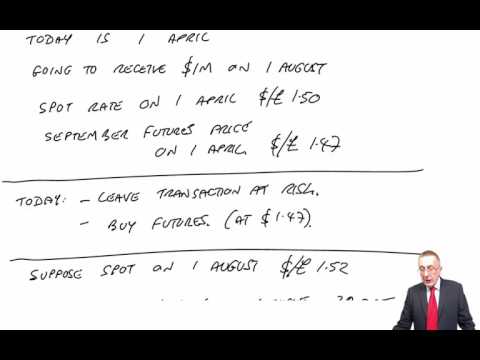 TODAY IS 1 APRIL
GOING TO RECEIVE $1M ON 1 AUGUST
SPOT RATE ON 1 APRIL $/£ 1.50
SEPTEMBER FUTURES PRICE
ON 1 APRIL $/£ 1.47
TODAY: - LEAVE TRANSACTION AT RISK.
- BUY FUTURES. (AT $1.47).
SUPPOSE SPOT ON 1 AUGUST $/£ 1.52